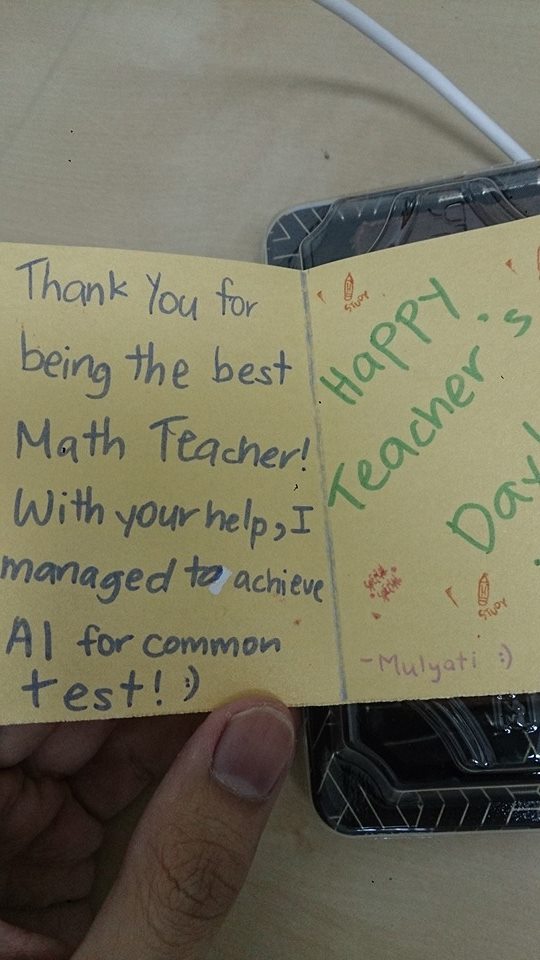 Thank You for
being the best
Math Teacher!
With your help, I
managed to achieve
A1 for common
test! :)
STUDY
Happy
Teacher's
Day!
STUDY
-Mulyati :)